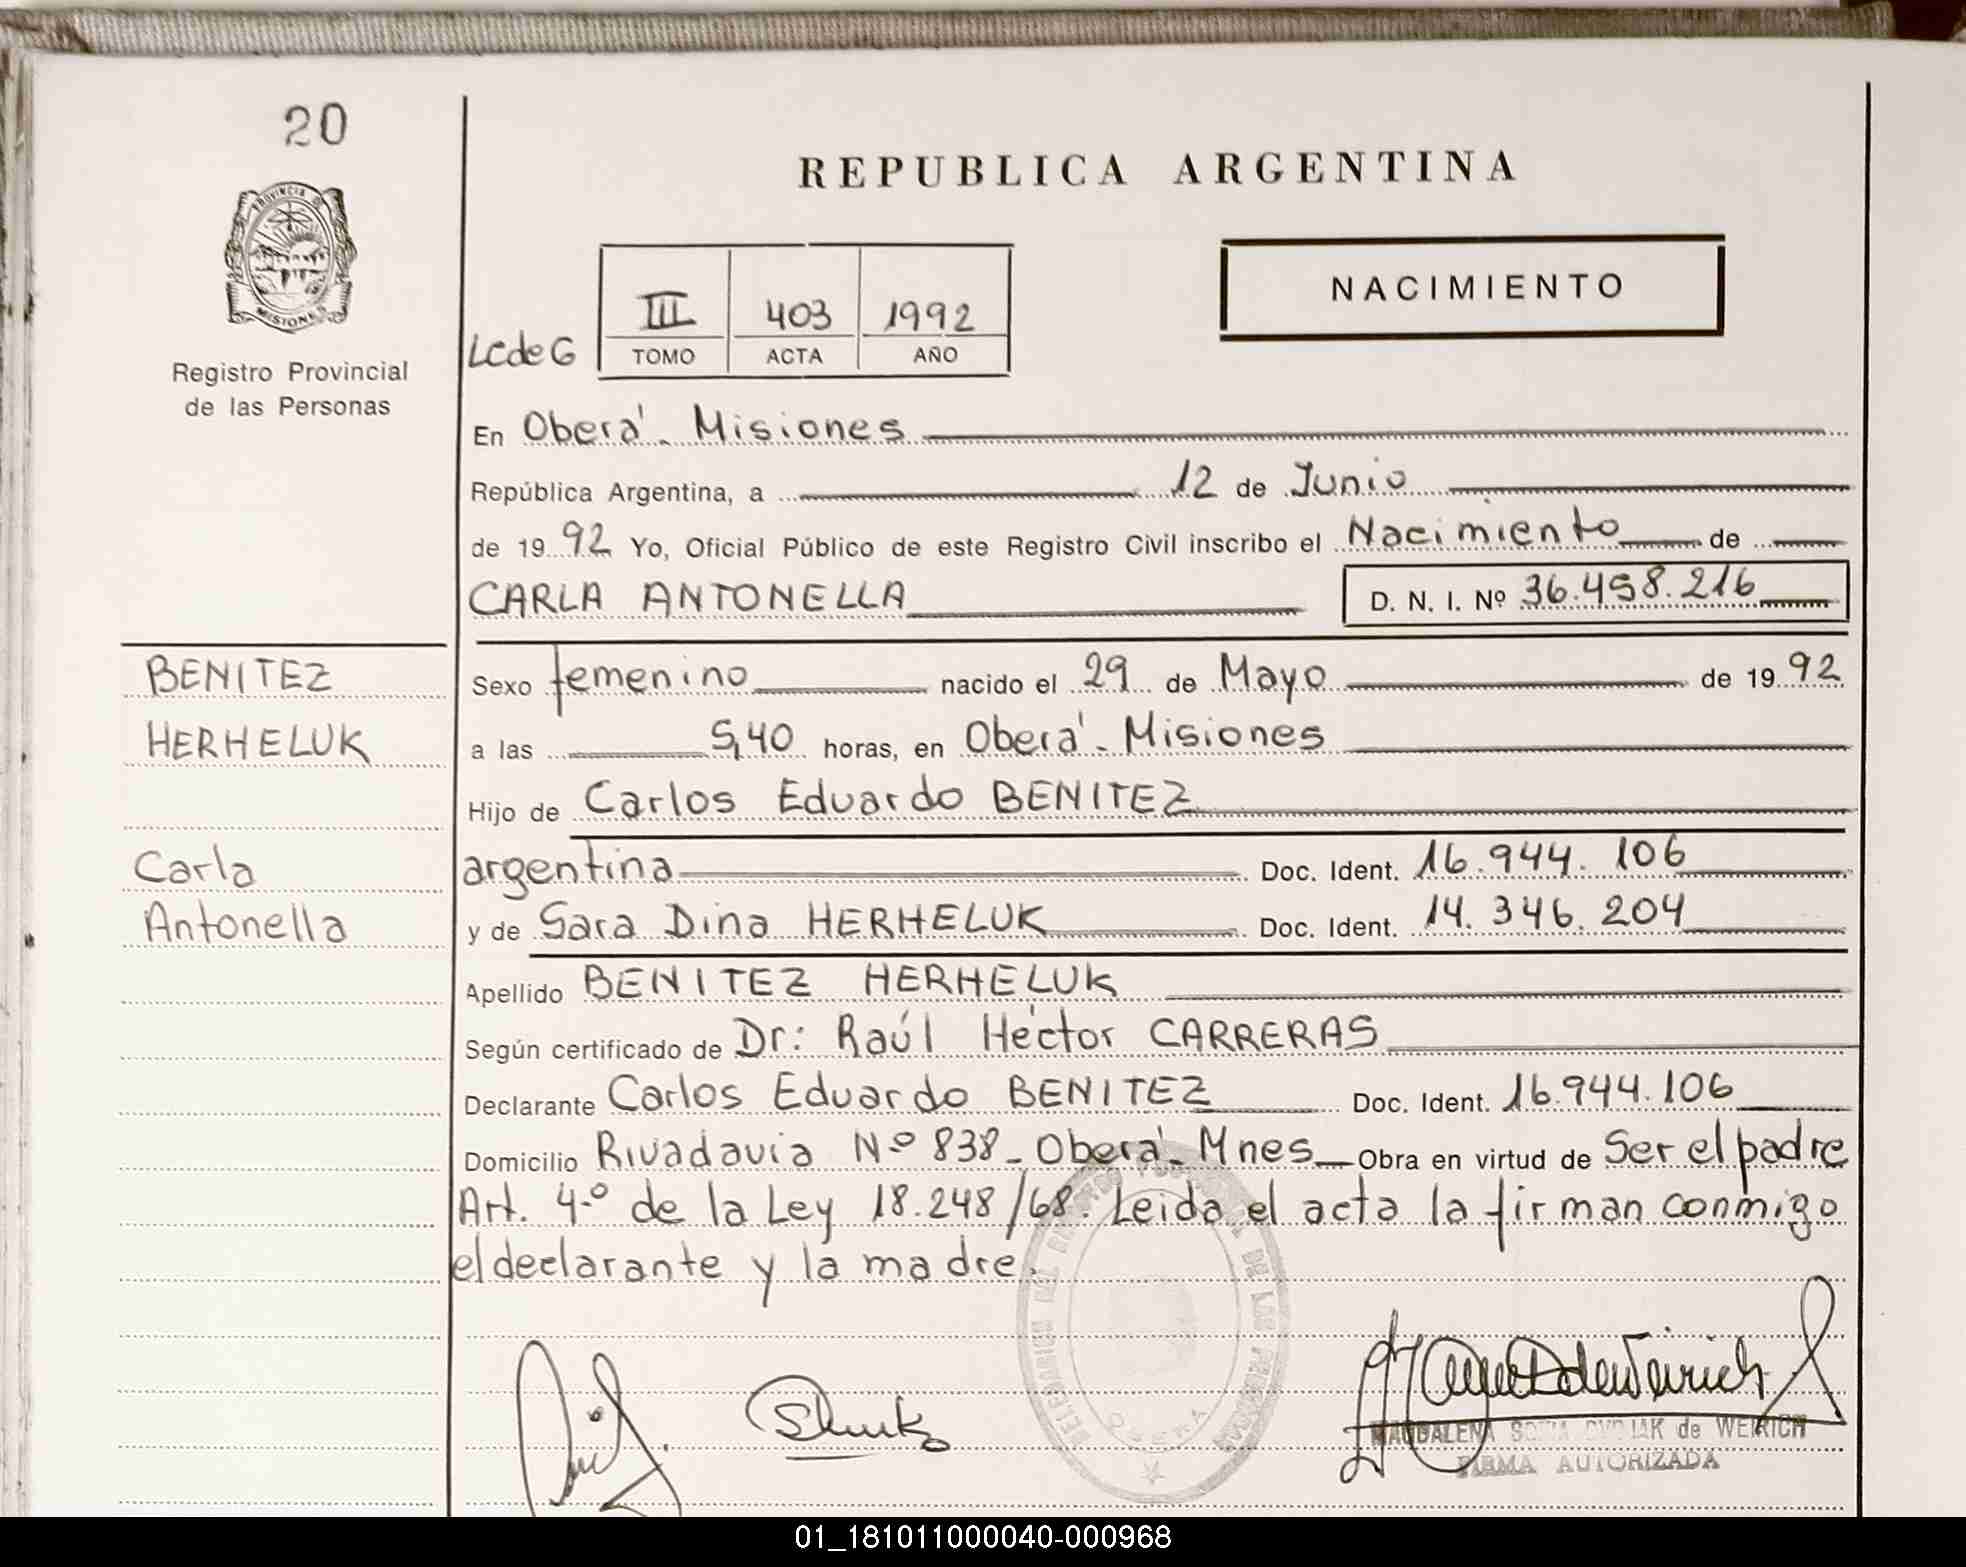 20
REPUBLICA ARGENTINA
PROVINCIA D
MISIONES
Registro Provincial
de las Personas
NACIMIENTO
LCdeG
III 403 1992
TOMO ACTA AÑO
En Oberá - Misiones
República Argentina, a 12 de Junio
de 1992 Yo, Oficial Público de este Registro Civil inscribo el Nacimiento de
CARLA ANTONELLA D. N. I. Nº 36.458.216
BENITEZ
HERHELUK
Carla
Antonella
Sexo femenino nacido el 29 de Mayo de 1992
a las 5,40 horas, en Oberá - Misiones
Hijo de Carlos Eduardo BENITEZ
argentina Doc. Ident. 16.944.106
y de Sara Dina HERHELUK Doc. Ident. 14.346.204
Apellido BENITEZ HERHELUK
Según certificado de Dr: Raúl Héctor CARRERAS
Declarante Carlos Eduardo BENITEZ Doc. Ident. 16.944.106
Domicilio Rivadavia Nº 838 - Oberá - Mnes Obra en virtud de Ser el padre
Art. 4º de la Ley 18.248/68. Leida el acta la firman conmigo
el declarante y la madre.
MAGDALENA de WEIRICH
FIRMA AUTORIZADA
01_181011000040-000968